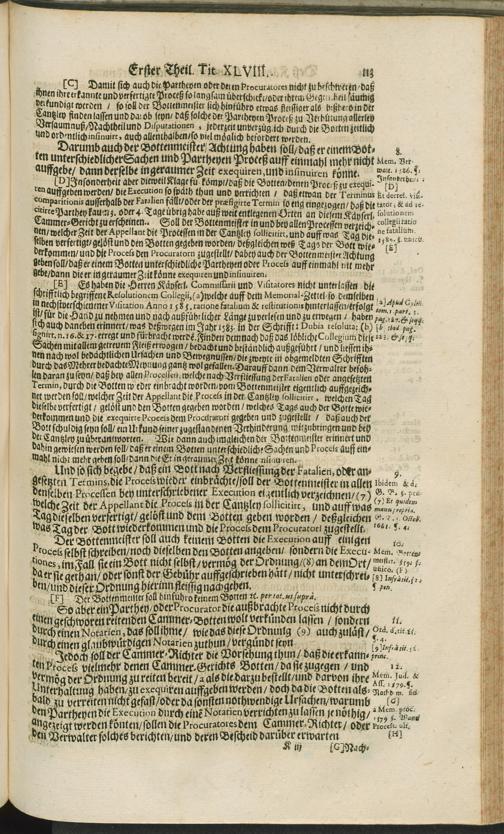 Erster Theil. Tit. XLVIII. 113
[C] Damit sich auch die Partheyen oder deren Procuratores nicht zu beschweren / daß
ihnen ihre erkannte und verfertigte Proceß so langsam überschickt / oder ihrem Gegentheil säumig
verkündigt werden / so soll der Bottenmeister sich hinführo etwas fleissiger als bißher in der
Cantzley finden lassen und da ob seyn / daß solche der Partheyen Proceß zu Verhütung allerley
Versaumnuß / Nachtheil und Disputationen, jederzeit unverzüglich durch die Botten zeitlich
und ordentlich insinuirt, auch allenthalben / so viel möglich befördert werden.
Darumb auch der Bottenmeister Achtung haben soll / daß er einem Botten
unterschiedlicher Sachen und Partheyen Proceß auff einmahl mehr nicht
auffgebe / dann derselbe in geraumer Zeit exequiren, und insinuiren könne.
[D] Insonderheit aber dieweil Klage fürkompt / daß die Botten deren Proceß zu exequiren
auffgeben werden / die Execution so späth thun und verrichten / daß etwan der Terminus
comparitionis ausserhalb der Fatalien fällt / oder der præfigirte Termin so eng eingezogen / daß die
citirte Parthey kaum 3. oder 4. Tage übrig habe auß weit entlegenen Orten an diesem Käyserl.
Cammer-Gericht zu erscheinen. Soll der Bottenmeister in und bey allen Processen verzeichnen /
welcher Zeit der Appellant die Processen in der Cantzley sollicitirt, und auff was Tag dieselben
verfertigt / gelöst und den Botten gegeben worden / deßgleichen weß Tags der Bott wiederkommen /
und die Proceß dem Procuratorn zugestellt / dabey auch der Bottenmeister Achtung
geben soll / daß er einem Botten unterschiedliche Partheyen oder Proceß auff einmahl nit mehr
gebe / dann die er in geraumer Zeit könne exequiren und insinuiren.
[E] Es haben die Herren Keyserl. Commissarii und Visitatores nicht unterlassen / die
schrifftlich begriffene Resolutionem Collegii, (a) welche auff dem Memorial-Zettel so demselben
in nechstverschienener Visitation Anno 1583. ratione fatalium & restitutionis hinterlassen / erfolgt
ist / für die Hand zu nehmen und nach außführlicher Länge zu verlesen und zu erwegen / haben
sich auch daneben erinnert / was deßwegen im Jahr 1583. in der Schrifft: Dubia resoluta; (b)
signirt, n. 16. & 17. erregt und fürbracht werde. Finden demnach daß das löbliche Collegium diese
Sachen mit allem getreuem Fleiß erwogen / bedacht und beständig außgeführt / und liessen ihnen
nach wol bedächtlichen Ursachen und Bewegnussen / die zweyte in obgemeldten Schrifften
durch das Mehrer bedachte Meynung gantz wol gefallen. Darauff dann dem Verwalter befohlen
daran zu seyn / daß bey allen Processen, welche nach Verfliessung der Fatalien oder angesetzten
Termin, durch die Botten wieder einbracht worden / vom Bottenmeister eigentlich auffgezeichnet
werden soll / welcher Zeit der Appellant die Proceß in der Cantzley sollicitirt, welchen Tag
dieselbe verfertigt / gelöst und den Botten gegeben worden / welches Tags auch der Botte wiederkommen
und die exequirte Proceß dem Procuratorn gegeben und zugestellt / daß auch der
Bott schuldig seyn soll / ein Urkund seiner zugestandenen Verhinderung mitzubringen und bey
der Cantzley zu überantworten. Wie dann auch imgleichen der Bottenmeister erinnert und
dahin gewiesen werden soll / daß er einem Botten unterschiedliche Sachen und Proceß auff einmahl
nicht mehr geben soll / dann die Er in geraumer Zeit könne insinuiren.
Und so sich begebe / daß ein Bott nach Verfliessung der Fatalien, oder angesetzten
Termins, die Proceß wieder einbrächte / soll der Bottenmeister in allen
denselben Processen bey unterschriebener Execution eigentlich verzeichnen / (7)
welche Zeit der Appellant die Process in der Cantzley sollicitirt, und auff was
Tag dieselben verfertigt / gelöst und dem Botten geben worden / deßgleichen
was Tag der Bott wiederkommen und die Proceß dem Procuratorn zugestellt.
Der Bottenmeister soll auch keinem Botten die Execution auff einigen
Proceß selbst schreiben / noch dieselben den Botten angeben / sondern die Executiones,
im Fall sie ein Bott nicht selbst / vermög der Ordnung / (8) an dem Ort /
da er sie gethan / oder sonst der Gebühr auffgeschrieben hätt / nicht unterschreiben /
und dieser Ordnung hierinn fleissig nachgehen.
[F] Der Bottenmeister soll hinführo keinem Botten &c. per tot. ut suprà.
So aber ein Parthey / oder Procurator die außbrachte Proceß nicht durch
einen geschworen reitenden Cammer-Botten wolt verkünden lassen / sondern
durch einen Notarien, das soll ihme / wie das diese Ordnung (9) auch zuläst /
durch einen glaubwürdigen Notarien zuthun / vergünst seyn.
Jedoch soll der Cammer-Richter die Vorsehung thun / daß die erkannten
Proceß vielmehr denen Cammer-Gerichts Botten / da sie zugegen / und
vermög der Ordnung zu reiten bereit / a als die darzu bestellt / und darvon ihre
Unterhaltung haben / zu exequiren auffgeben werden / doch da die Botten alsbald
zu verreiten nicht gefast / oder da sonsten nothwendige Ursachen / warumb
den Partheyen die Execution durch eine Notarien verrichten zu lassen je nöthig /
angezeigt werden könten / sollen die Procuratores dem Cammer-Richter / oder
den Verwalter solches berichten / und deren Bescheid darüber erwarten
K iij [G] Nach-
8.
[D]
[E]
9.
10.
11.
12.
[G]
[H]